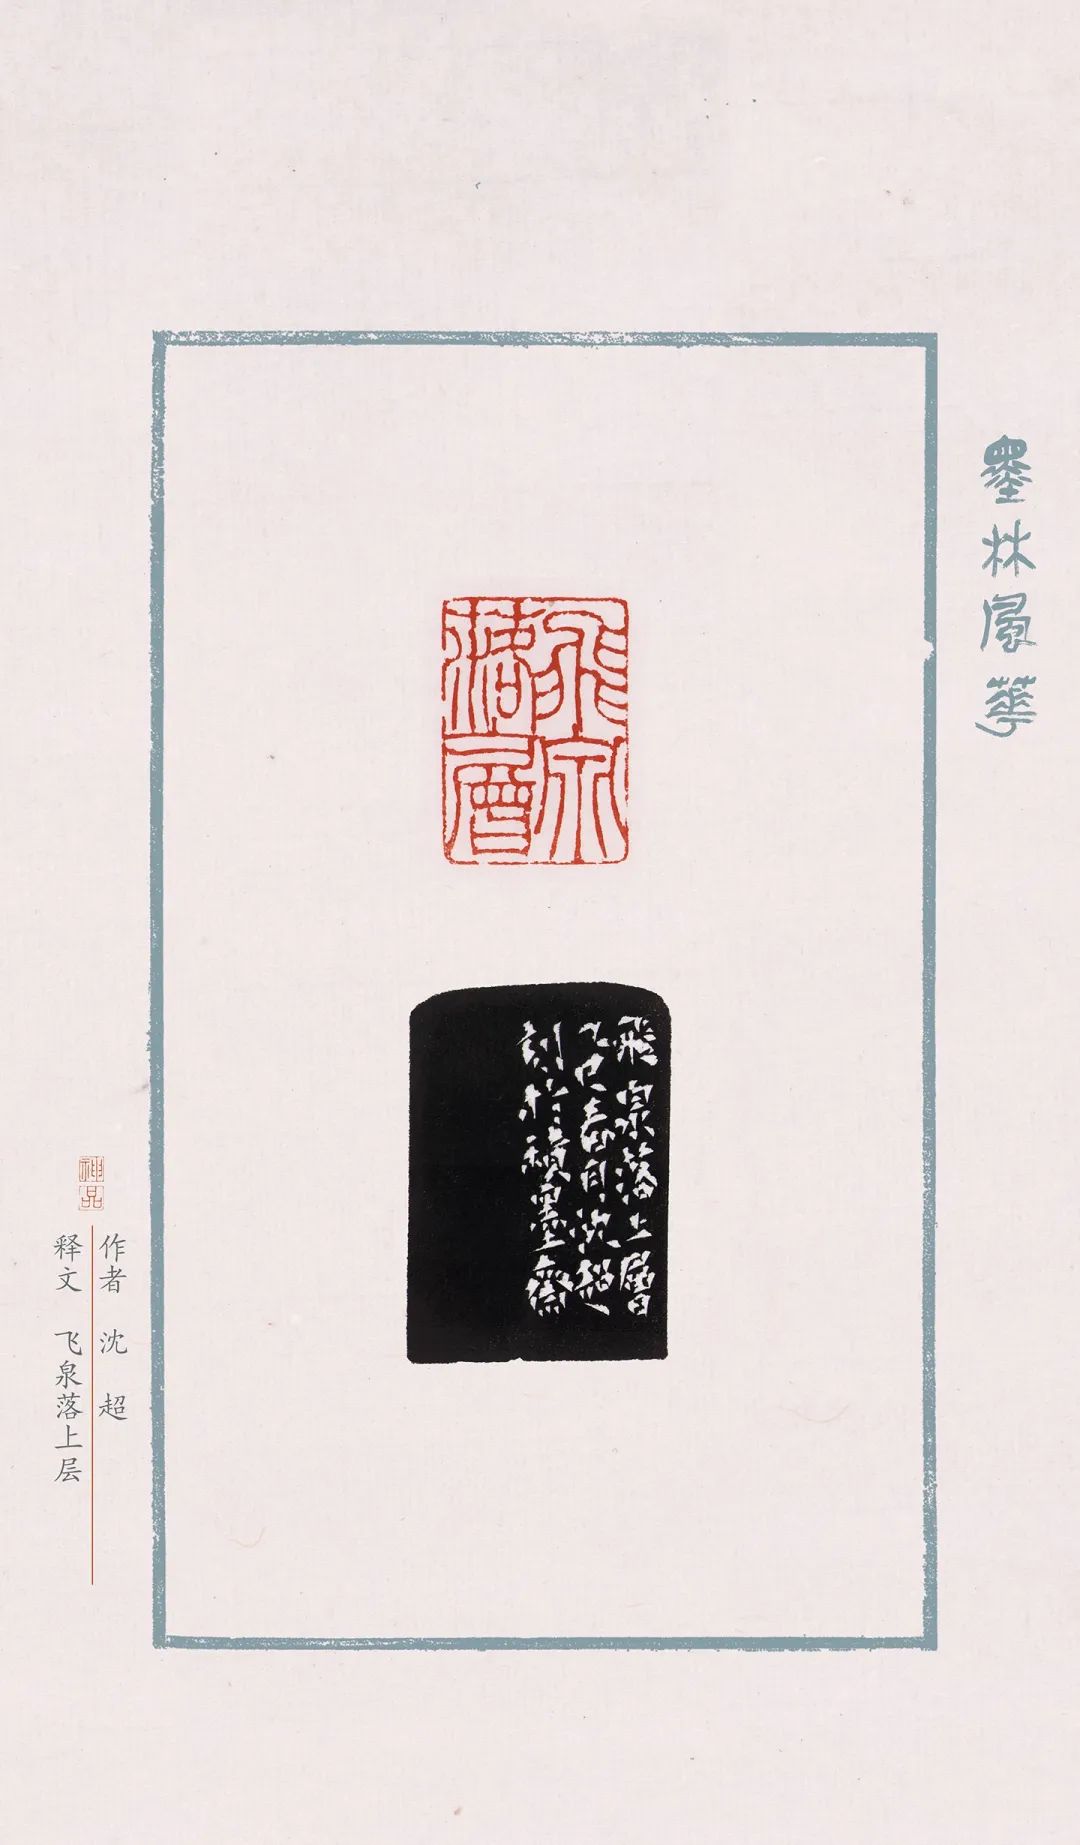 墨林風華
飛泉
落上層
飛泉落上層
乙巳春月沈超
刻於積墨齋
神品
作者 沈 超
释文 飞泉落上层